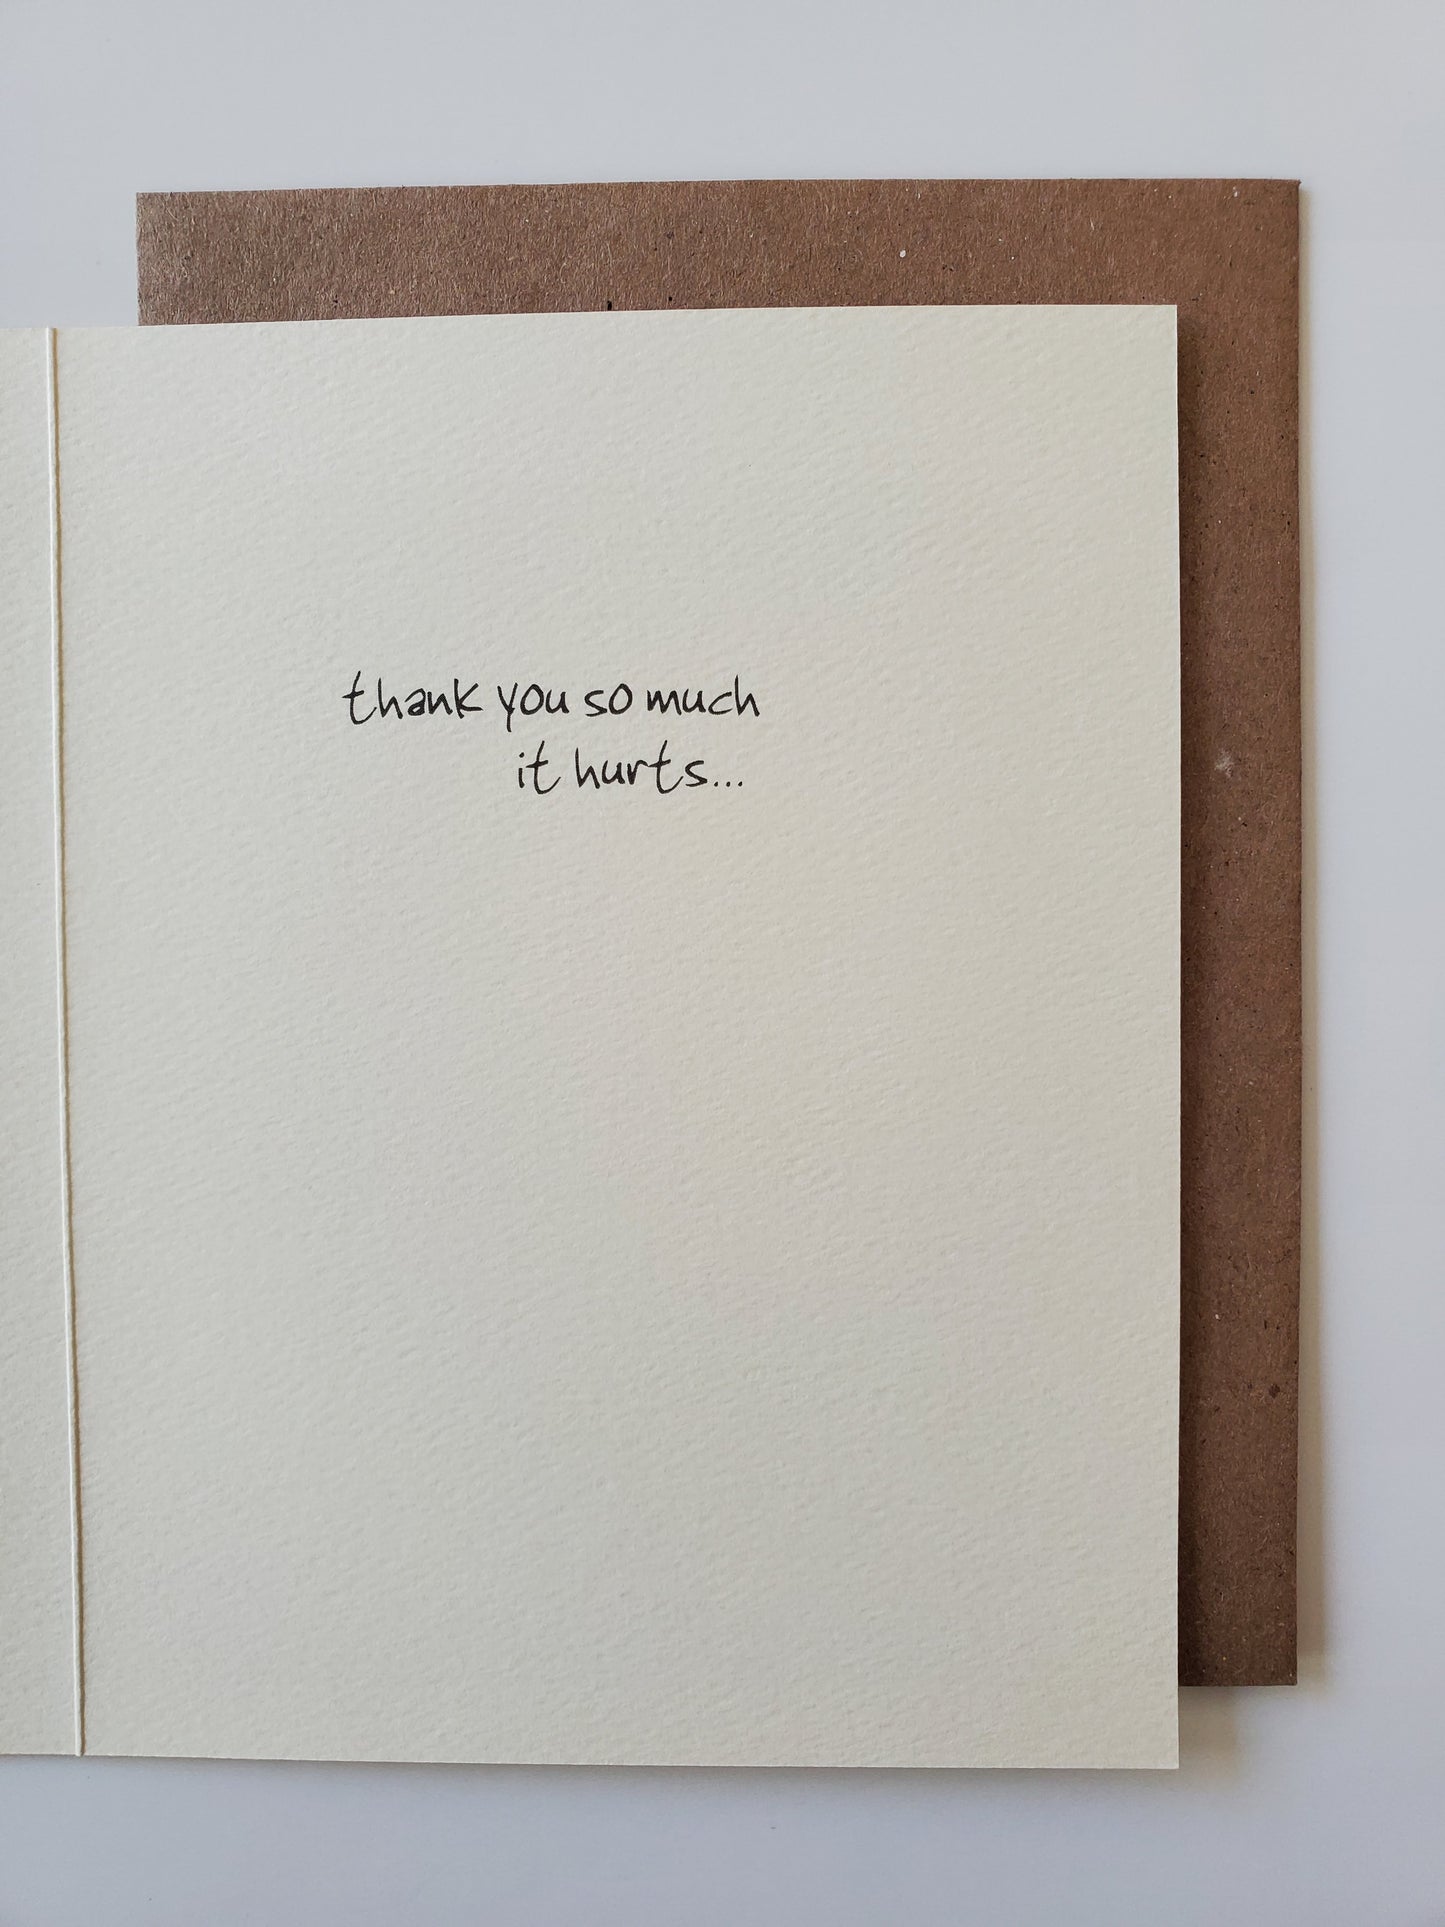 thank you so much
it hurts...